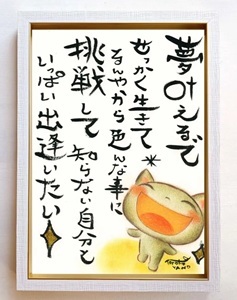 夢叶えるで
せっかく生きて
るんやから色んな事に
挑戦して知らない自分と
いっぱい出逢いたい